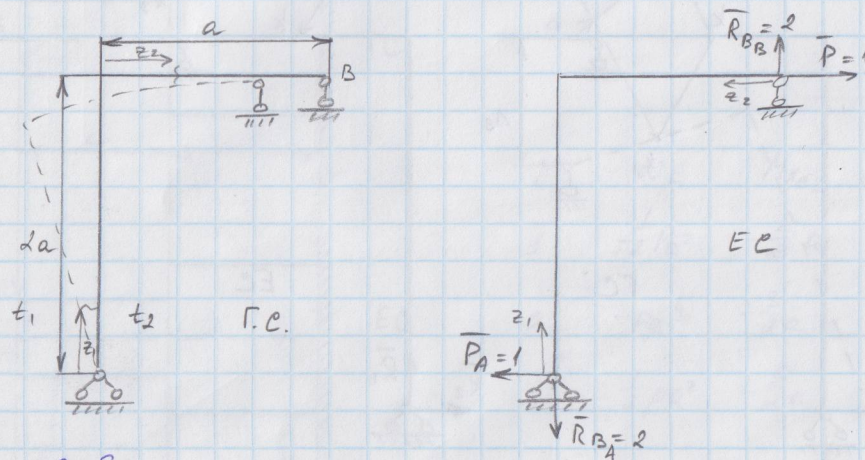 a
z₂
B
2a
t₁
t₂
z₁
Г.С.
R̅_B_B = 2
P̅ =
z₂
ЕС
z₁
P̅_A = 1
R̅_B_A = 2